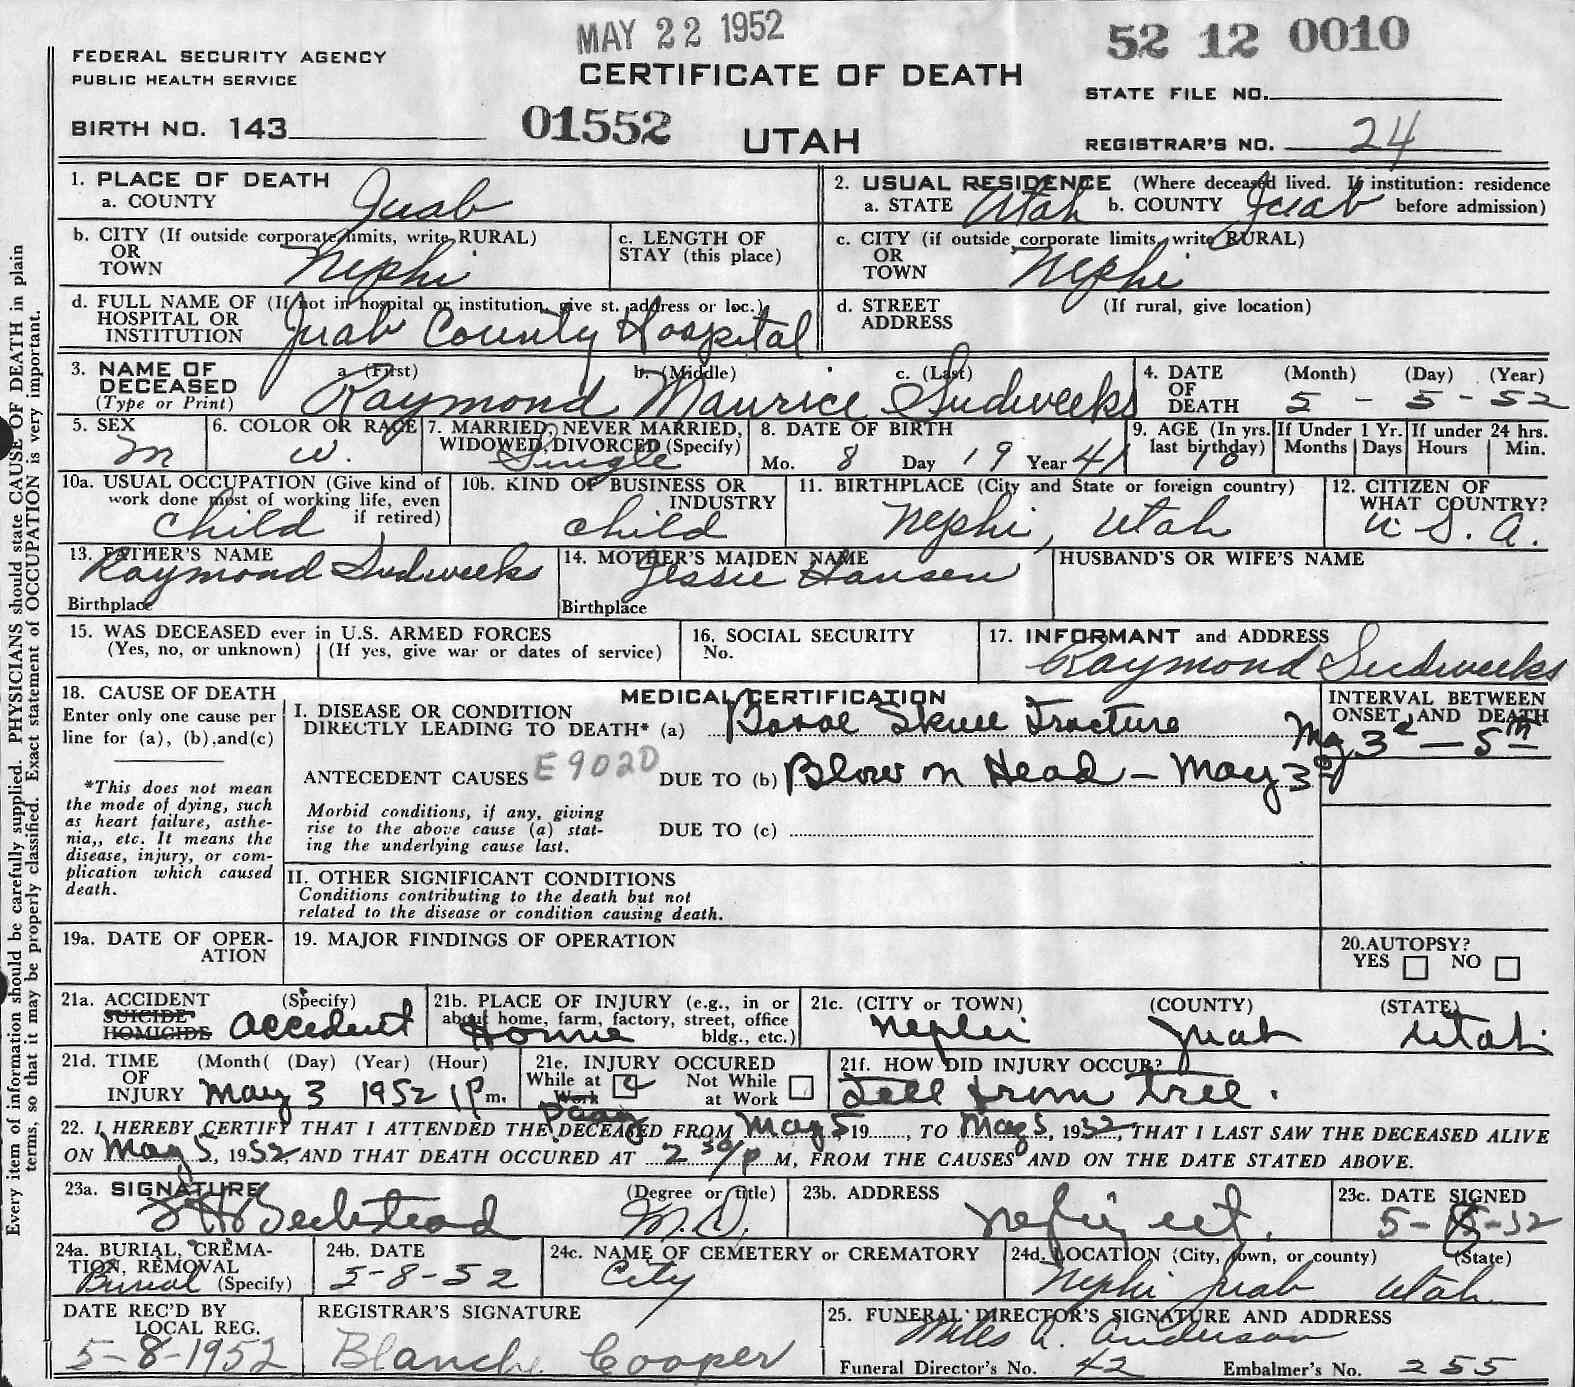 MAY 22 1952
52 12 0010
FEDERAL SECURITY AGENCY
PUBLIC HEALTH SERVICE
CERTIFICATE OF DEATH
STATE FILE NO.
BIRTH NO. 143
01552
UTAH
REGISTRAR'S NO. 24
Every item of information should be carefully supplied. PHYSICIANS should state CAUSE OF DEATH in plain
terms, so that it may be properly classified. Exact statement of OCCUPATION is very important.
1. PLACE OF DEATH
a. COUNTY Juab
2. USUAL RESIDENCE (Where deceased lived. If institution: residence
a. STATE Utah b. COUNTY Juab before admission)
b. CITY (If outside corporate limits, write RURAL)
OR
TOWN Nephi
c. LENGTH OF
STAY (this place)
c. CITY (if outside corporate limits, write RURAL)
OR
TOWN Nephi
d. FULL NAME OF (If not in hospital or institution, give st. address or loc.)
HOSPITAL OR
INSTITUTION Juab County Hospital
d. STREET (If rural, give location)
ADDRESS
3. NAME OF
DECEASED
(Type or Print)
a. (First) b. (Middle) c. (Last)
Raymond Maurice Sudweeks
4. DATE (Month) (Day) (Year)
OF
DEATH 5 - 5 - 52
5. SEX
M
6. COLOR OR RACE
W.
7. MARRIED, NEVER MARRIED,
WIDOWED, DIVORCED (Specify)
Single
8. DATE OF BIRTH
Mo. 8 Day 19 Year 41
9. AGE (In yrs.
last birthday)
10
If Under 1 Yr.
Months Days
If under 24 hrs.
Hours Min.
10a. USUAL OCCUPATION (Give kind of
work done most of working life, even
if retired)
Child
10b. KIND OF BUSINESS OR
INDUSTRY
Child
11. BIRTHPLACE (City and State or foreign country)
Nephi, Utah
12. CITIZEN OF
WHAT COUNTRY?
U. S. A.
13. FATHER'S NAME
Raymond Sudweeks
Birthplace
14. MOTHER'S MAIDEN NAME
Jessie Hansen
Birthplace
HUSBAND'S OR WIFE'S NAME
15. WAS DECEASED ever in U.S. ARMED FORCES
(Yes, no, or unknown) (If yes, give war or dates of service)
16. SOCIAL SECURITY
No.
17. INFORMANT and ADDRESS
Raymond Sudweeks
18. CAUSE OF DEATH
Enter only one cause per
line for (a), (b), and (c)
*This does not mean
the mode of dying, such
as heart failure, asthe-
nia,, etc. It means the
disease, injury, or com-
plication which caused
death.
MEDICAL CERTIFICATION
I. DISEASE OR CONDITION
DIRECTLY LEADING TO DEATH* (a) Basal Skull Fracture
ANTECEDENT CAUSES E902D DUE TO (b) Blow on Head - May 3rd
Morbid conditions, if any, giving
rise to the above cause (a) stat-
ing the underlying cause last.
DUE TO (c)
INTERVAL BETWEEN
ONSET AND DEATH
May 3rd - 5th
II. OTHER SIGNIFICANT CONDITIONS
Conditions contributing to the death but not
related to the disease or condition causing death.
19a. DATE OF OPER-
ATION
19. MAJOR FINDINGS OF OPERATION
20. AUTOPSY?
YES NO
21a. ACCIDENT (Specify)
SUICIDE
HOMICIDE
accident
21b. PLACE OF INJURY (e.g., in or
about home, farm, factory, street, office
bldg., etc.)
Home
21c. (CITY or TOWN) (COUNTY) (STATE)
Nephi Juab Utah
21d. TIME (Month( (Day) (Year) (Hour)
OF
INJURY May 3 1952 1 P m.
21e. INJURY OCCURED
While at Not While
Work at Work
21f. HOW DID INJURY OCCUR?
Fell from Tree.
22. I HEREBY CERTIFY THAT I ATTENDED THE DECEASED FROM May 5 19, TO May 5, 1952, THAT I LAST SAW THE DECEASED ALIVE
ON May 5, 1952, AND THAT DEATH OCCURED AT 2 30 P M, FROM THE CAUSES AND ON THE DATE STATED ABOVE.
23a. SIGNATURE (Degree or title)
Beckstead M.D.
23b. ADDRESS
Nephi, Ut.
23c. DATE SIGNED
24a. BURIAL, CREMA-
TION, REMOVAL
(Specify)
Burial
24b. DATE
5-8-52
24c. NAME OF CEMETERY or CREMATORY
City
24d. LOCATION (City, town, or county) (State)
Nephi Juab Utah
DATE REC'D BY
LOCAL REG.
5-8-1952
REGISTRAR'S SIGNATURE
Blanche Cooper
25. FUNERAL DIRECTOR'S SIGNATURE AND ADDRESS
Miles A. Anderson
Funeral Director's No. 42 Embalmer's No. 255